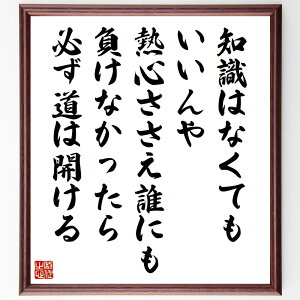 知識はなくても
いいんや
熱心ささえ誰にも
負けなかったら
必ず道は開ける